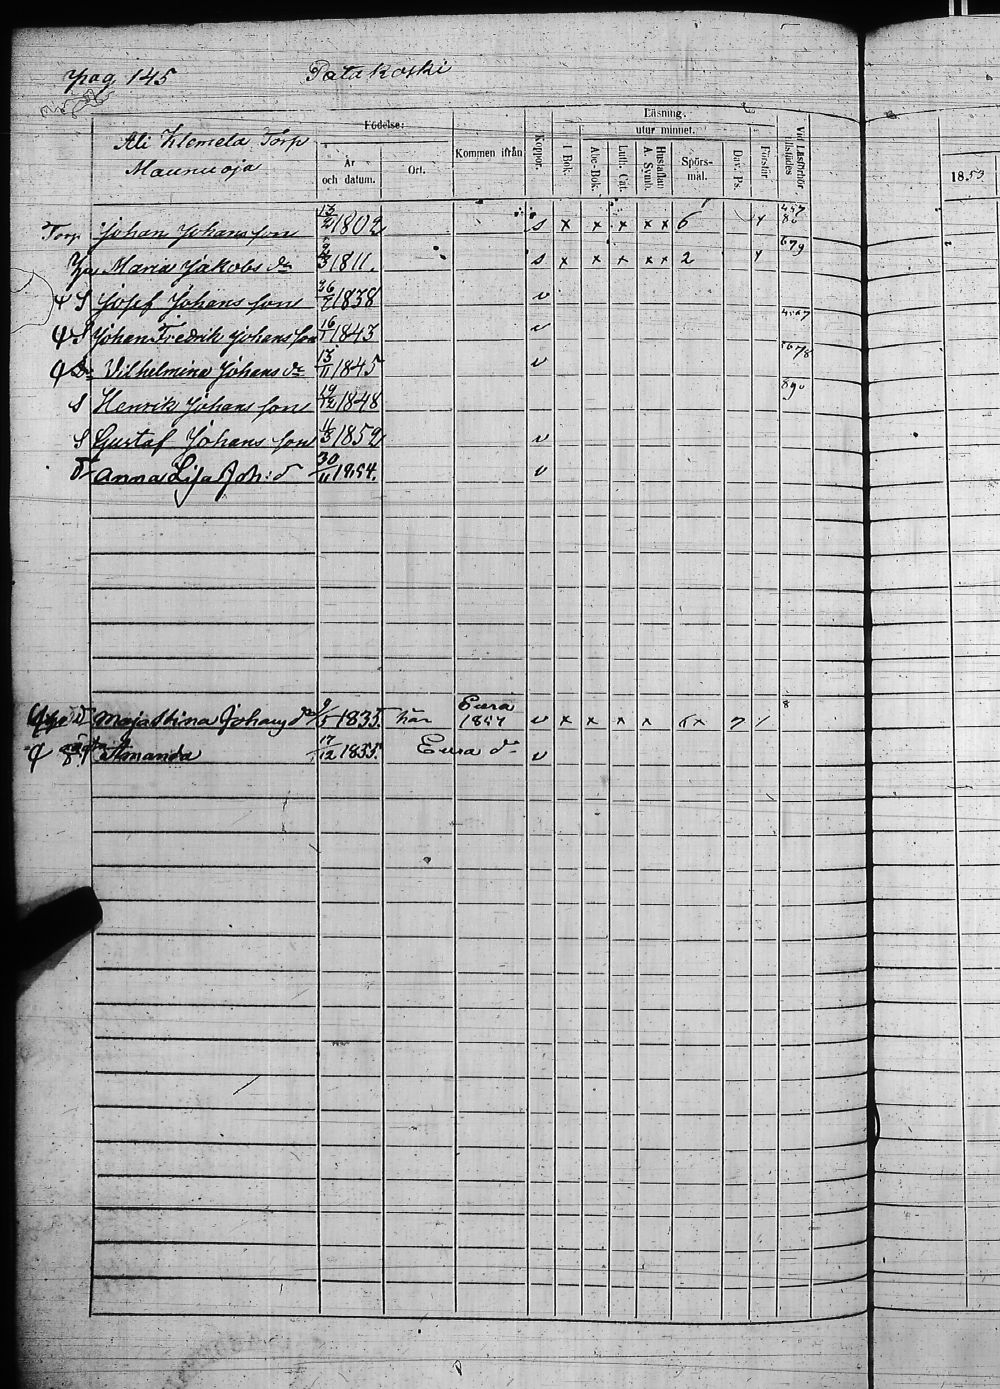 pag 145 Patakoski
Ali Klemela Torp
Maunuoja
Födelse:
År och datum.
Ort.
Kommen ifrån
Koppor.
Läsning.
utur minnet.
I Bok.
Abc-Bok.
Luth. Cat.
Hustaflan A. Symb.
Spörs-mål.
Dav. Ps.
Förstår
Vid Läsförhör tillstädes
1853
Torp Johan Johans son 13/2 1802 s x x x x x 6
Maria Jakobs dr 1811. s x x x x x 2
S Josef Johans son 1838 v
S Johan Fredrik Johans son 16/1 1843 v
Dr Vilhelmina Johans dr 13/11 1845 v
S Henrik Johans son 19/12 1848
S Gustaf Johans son 1852 v
dr Anna Lisa Joh: d 30/11 1854. v
Eura
d Maja Stina Johans dr 1835. här 1857 v x x x x 7
Amanda 17/12 1855. Eura dr v